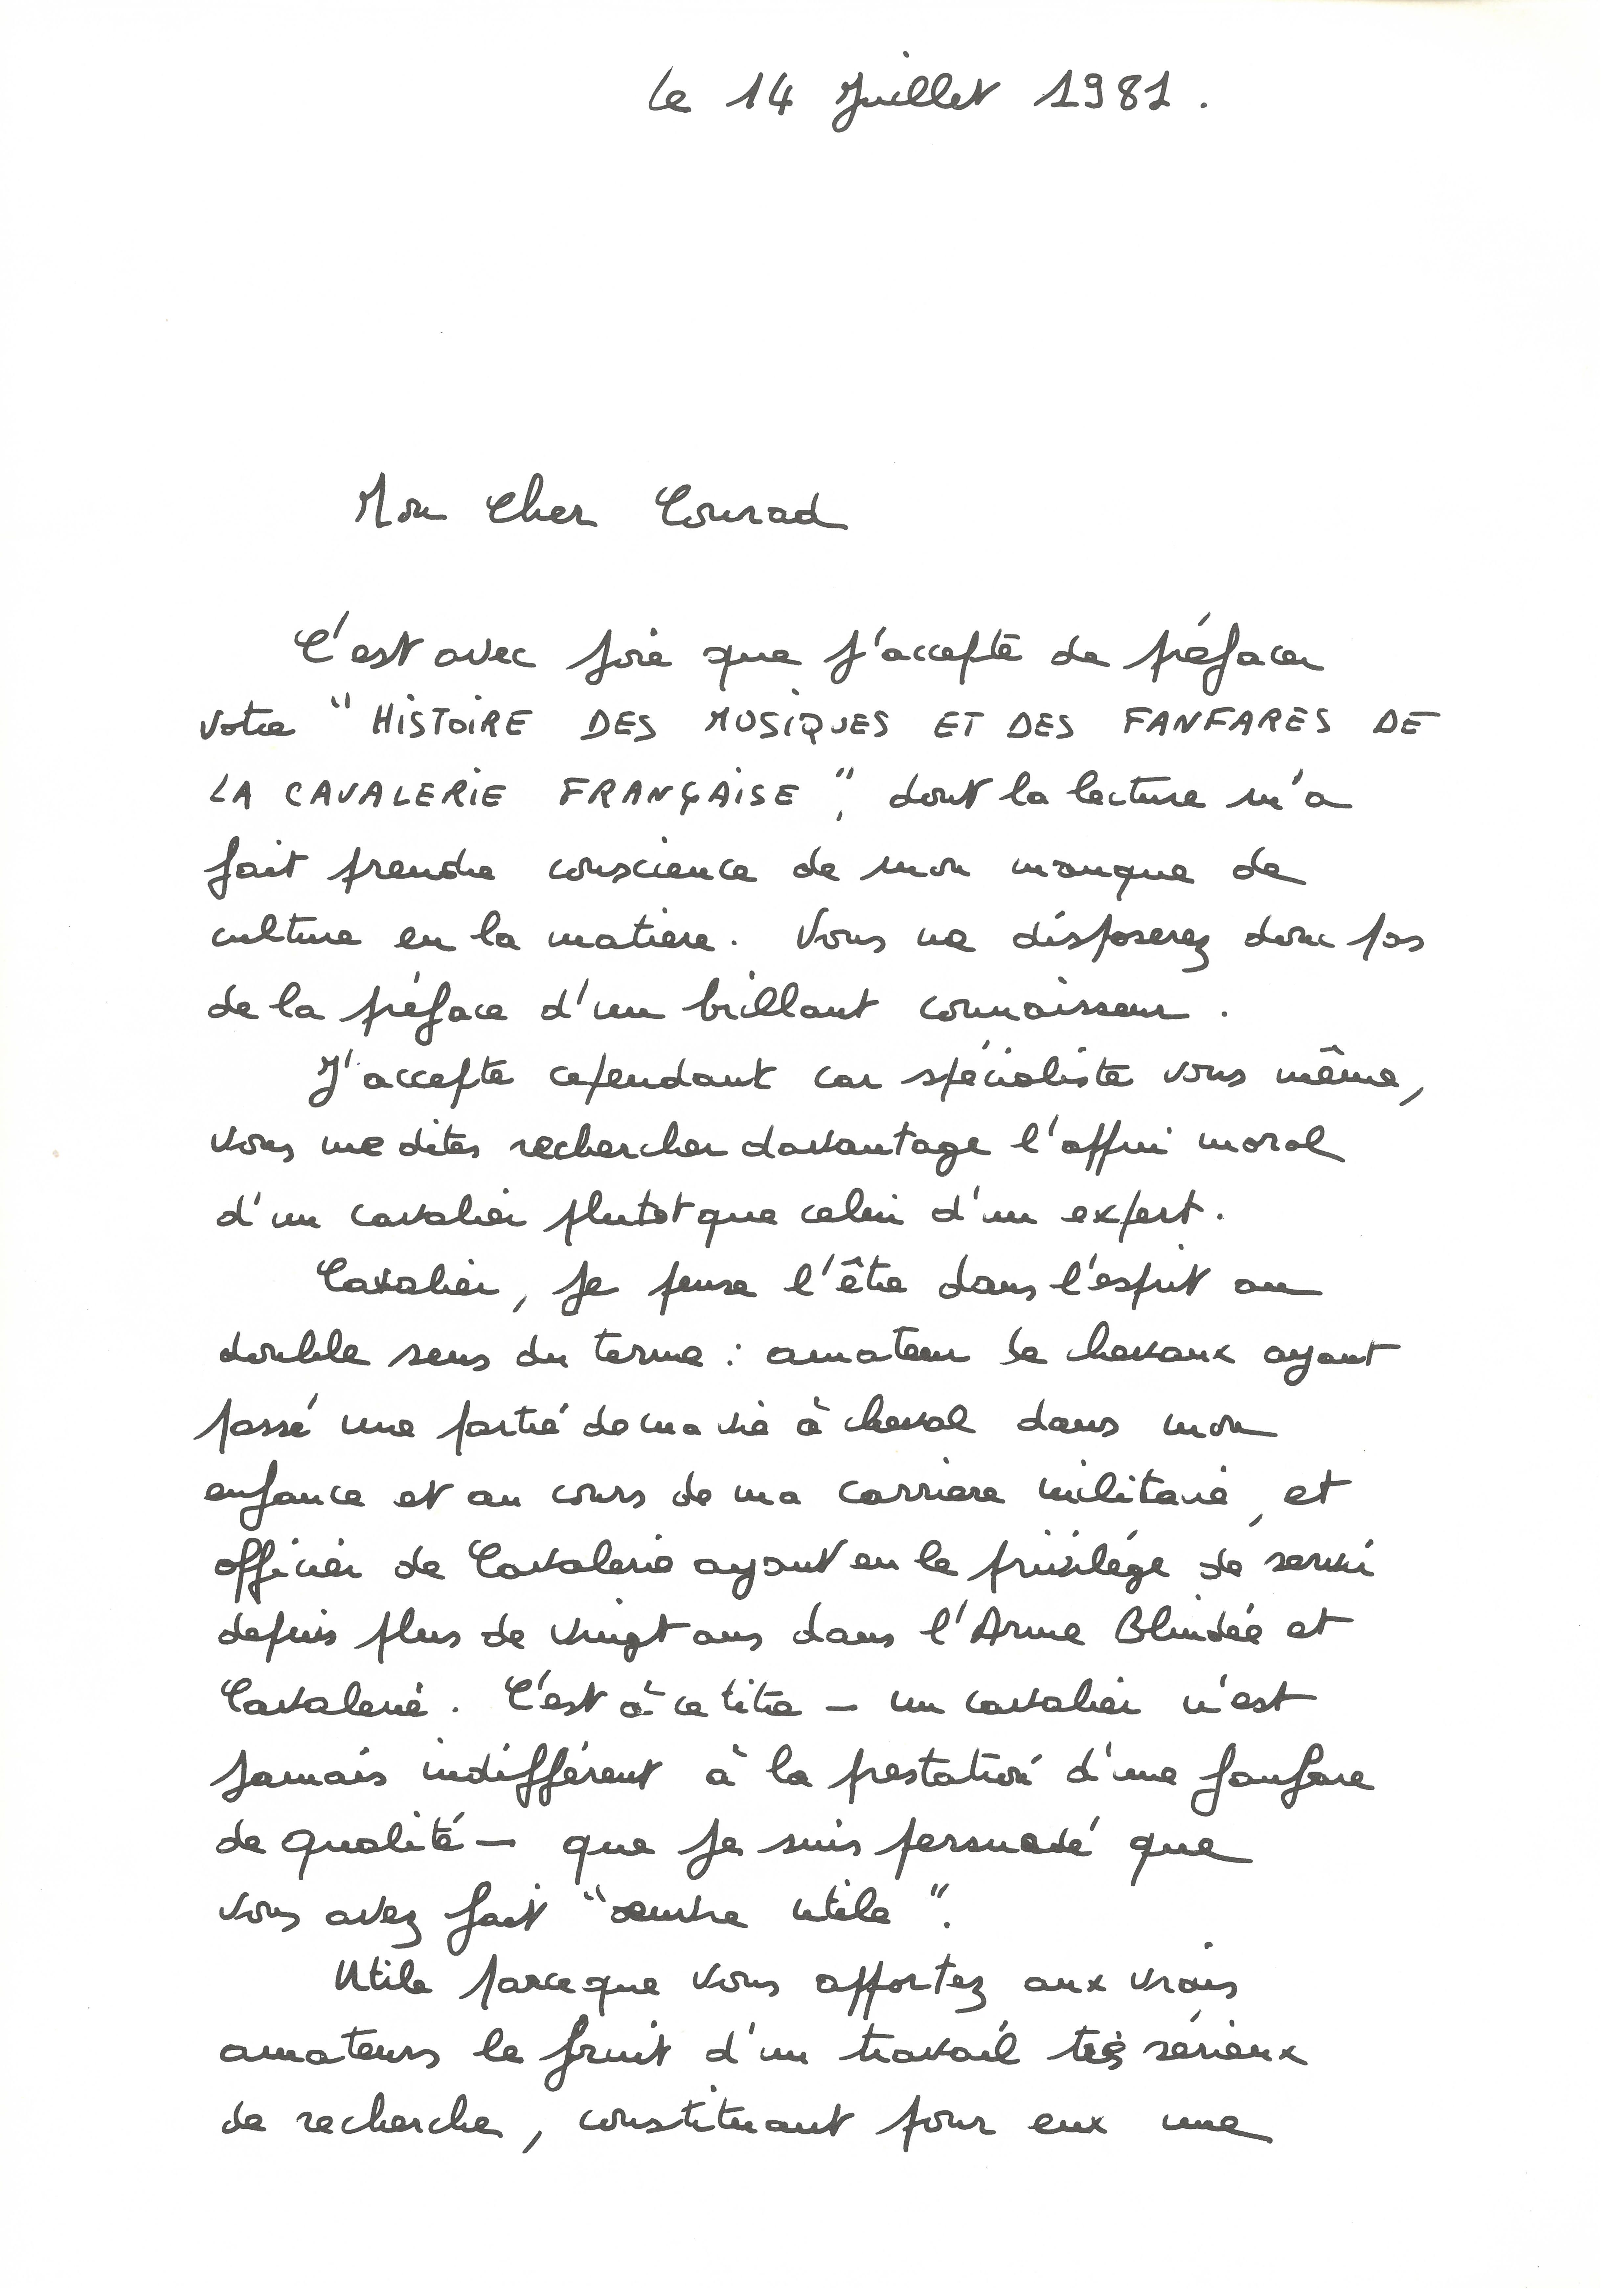 Le 14 Juillet 1981.
Mon Cher Conrad
C'est avec joie que j'accepte de préfacer
votre "HISTOIRE DES MUSIQUES ET DES FANFARES DE
LA CAVALERIE FRANÇAISE", dont la lecture m'a
fait prendre conscience de mon manque de
culture en la matière. Vous ne disposerez donc pas
de la préface d'un brillant connaisseur.
J'accepte cependant car spécialiste vous même,
vous me dites rechercher davantage l'appui moral
d'un cavalier plutot que celui d'un expert.
Cavalier, je pense l'être dans l'esprit au
double sens du terme : amateur de chevaux ayant
passé une partie de ma vie à cheval dans mon
enfance et au cours de ma carrière militaire, et
officier de Cavalerie ayant eu le privilège de servir
depuis plus de vingt ans dans l'Arme Blindée et
Cavalerie. C'est à ce titre – un cavalier n'est
jamais indifférent à la prestation d'une fanfare
de qualité – que je suis persuadé que
vous avez fait "oeuvre utile".
Utile parce que vous apportez aux vrais
amateurs le fruit d'un travail très sérieux
de recherche, constituant pour eux une